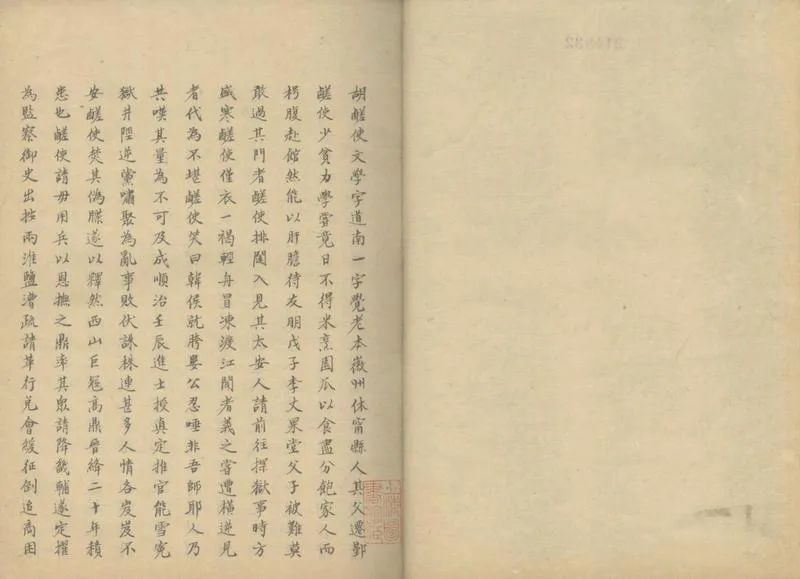 胡鹺使文學字道南一字覺老本徽州休甯縣人其父遷鄞
鹺使少貧力學嘗竟日不得米烹園瓜以食盡分飽家人而
枵腹赴館然能以肝膽待友朋戊子李丈杲堂父子被難莫
敢過其門者鹺使排闥入見其太安人請前往探獄事時方
盛寒鹺使僅衣一褐輕舟冒凍渡江聞者義之嘗遭橫逆見
者代為不堪鹺使笑曰韓侯就胯婁公忍唾非吾師耶人乃
共嘆其量為不可及成順治壬辰進士授真定推官能雪寃
獄井陘逆黨嘯聚為亂事敗伏誅株連甚多人情各岌岌不
安鹺使焚其偽牒遂以釋然西山巨寇高鼎晉絳二十年積
患也鹺使請毋用兵以恩撫之鼎率其眾請降畿輔遂定擢
為監察御史出按兩淮鹽漕疏請革行兌會緩征倒追商困